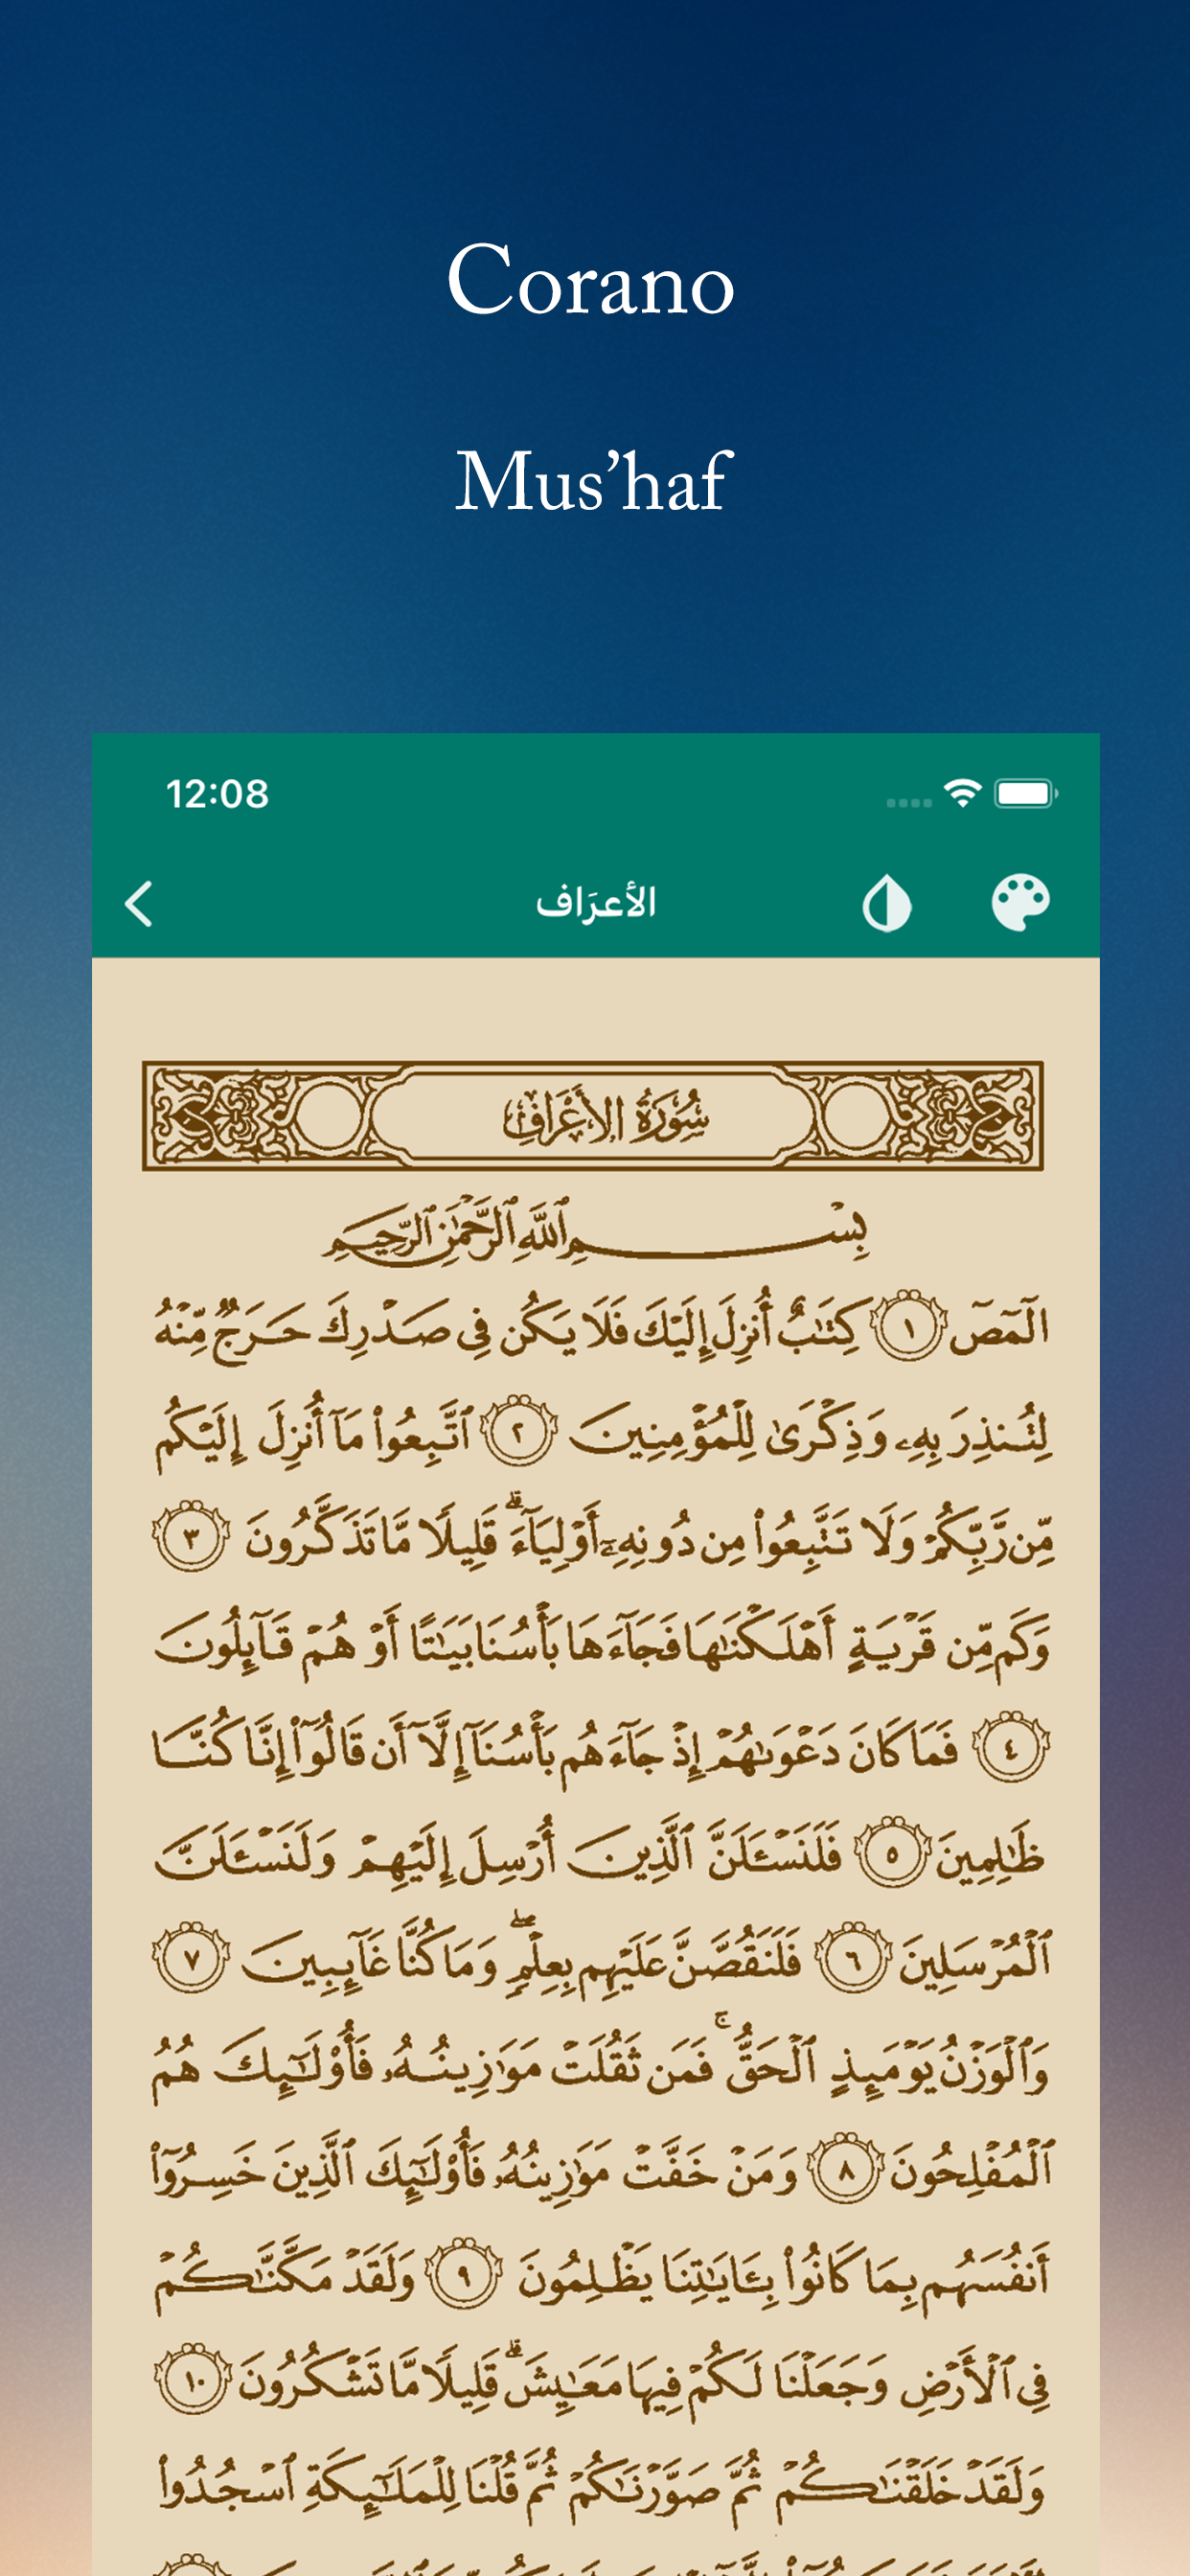 Corano
Mus’haf
12:08
الأعرَاف
سُورَةُ الأَعْرَافِ
بِسْمِ ٱللَّهِ ٱلرَّحْمَٰنِ ٱلرَّحِيمِ
الٓمٓصٓ ١ كِتَٰبٌ أُنزِلَ إِلَيْكَ فَلَا يَكُن فِى صَدْرِكَ حَرَجٌ مِّنْهُ
لِتُنذِرَ بِهِۦ وَذِكْرَىٰ لِلْمُؤْمِنِينَ ٢ ٱتَّبِعُوا۟ مَآ أُنزِلَ إِلَيْكُم
مِّن رَّبِّكُمْ وَلَا تَتَّبِعُوا۟ مِن دُونِهِۦٓ أَوْلِيَآءَ ۗ قَلِيلًا مَّا تَذَكَّرُونَ ٣
وَكَم مِّن قَرْيَةٍ أَهْلَكْنَٰهَا فَجَآءَهَا بَأْسُنَا بَيَٰتًا أَوْ هُمْ قَآئِلُونَ
٤ فَمَا كَانَ دَعْوَىٰهُمْ إِذْ جَآءَهُم بَأْسُنَآ إِلَّآ أَن قَالُوٓا۟ إِنَّا كُنَّا
ظَٰلِمِينَ ٥ فَلَنَسْـَٔلَنَّ ٱلَّذِينَ أُرْسِلَ إِلَيْهِمْ وَلَنَسْـَٔلَنَّ
ٱلْمُرْسَلِينَ ٦ فَلَنَقُصَّنَّ عَلَيْهِم بِعِلْمٍ ۖ وَمَا كُنَّا غَآئِبِينَ ٧
وَٱلْوَزْنُ يَوْمَئِذٍ ٱلْحَقُّ ۚ فَمَن ثَقُلَتْ مَوَٰزِينُهُۥ فَأُو۟لَٰٓئِكَ هُمُ
ٱلْمُفْلِحُونَ ٨ وَمَنْ خَفَّتْ مَوَٰزِينُهُۥ فَأُو۟لَٰٓئِكَ ٱلَّذِينَ خَسِرُوٓا۟
أَنفُسَهُم بِمَا كَانُوا۟ بِـَٔايَٰتِنَا يَظْلِمُونَ ٩ وَلَقَدْ مَكَّنَّٰكُمْ
فِى ٱلْأَرْضِ وَجَعَلْنَا لَكُمْ فِيهَا مَعَٰيِشَ ۗ قَلِيلًا مَّا تَشْكُرُونَ ١٠
وَلَقَدْ خَلَقْنَٰكُمْ ثُمَّ صَوَّرْنَٰكُمْ ثُمَّ قُلْنَا لِلْمَلَٰٓئِكَةِ ٱسْجُدُوا۟